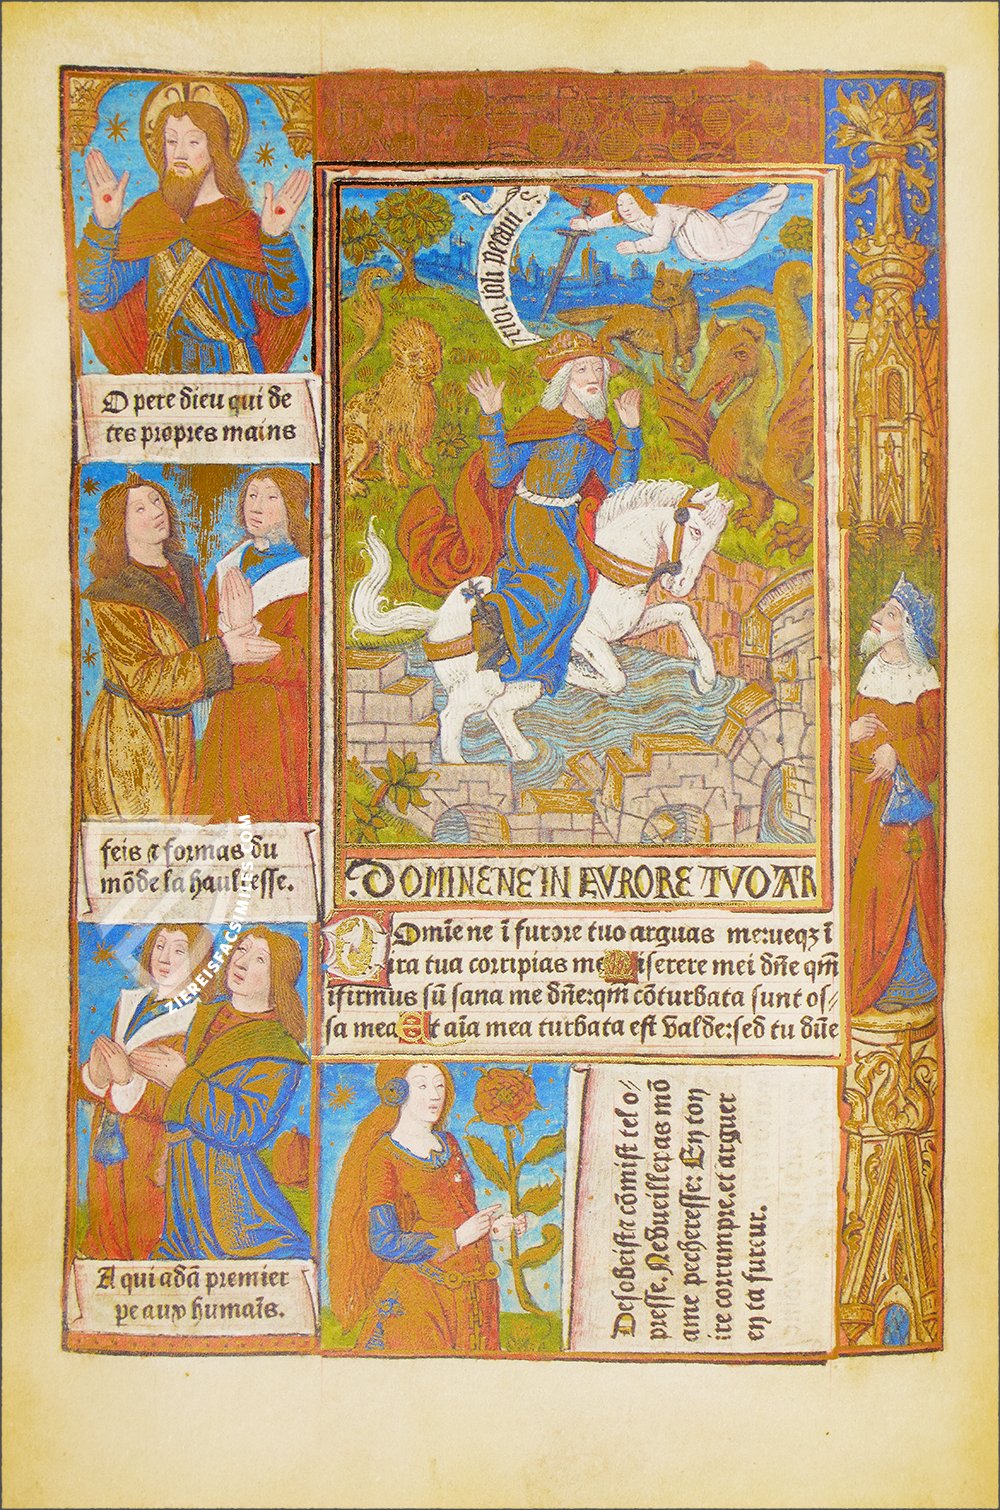 O pere dieu qui de
tes propres mains
feis ⁊ formas du
mōde la haultesse.
A qui adā premier
pe aux humaīs.
DOMINE NE IN FVRORE TVO AR
Domīe ne ī furore tuo arguas me:ueqȝ ī
ira tua corripias me Miserere mei dn̄e qm̄
ifirmus sū sana me dn̄e:qm̄ cōturbata sunt os⸗
sa mea Et aīa mea turbata est valde:sed tu dn̄e
Desobeist ⁊ cōmist tel o⸗
presse. Ne vueilles pas mō
ame pecheresse: En ton
ire corrumpre. et arguer
en ta fureur.
ZIEREISFACSIMILES.COM